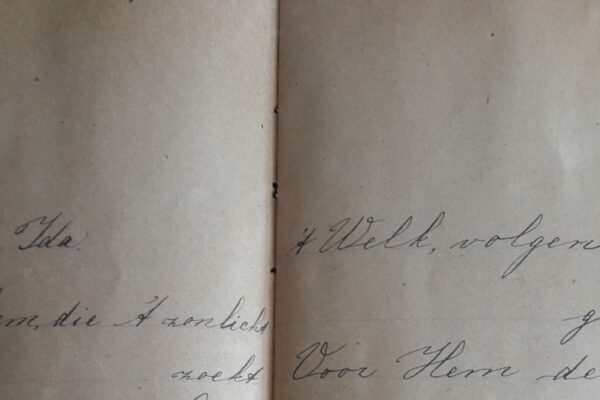 Ida.
em, die 't zonlicht
zoekt
't Welk, volgen
g
Voor Hem de